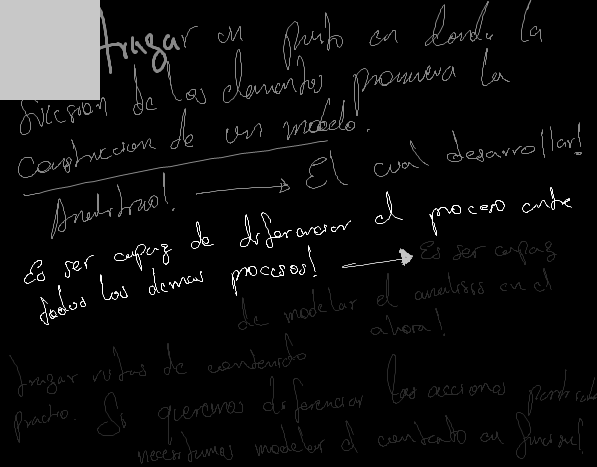 trazar un punto en donde la
fricción de los elementos promueva la
construccion de un modelo.
El cual desarrollar!
Es ser capaz de diferenciar el proceso entre
todos los demas procesos! Es ser capaz
de modelar el analisis en el
ahora!
trazar rutas de contenido
Si queremos diferenciar las acciones
necesitamos modelar el contexto en